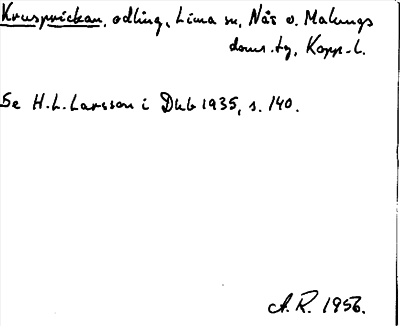 Krusprickan, odling, Lima sn, Nås o. Malungs
doms.tg, Kopp.l.
Se H.L.Larsson i Dhb 1935, s. 140.
A.R. 1956.